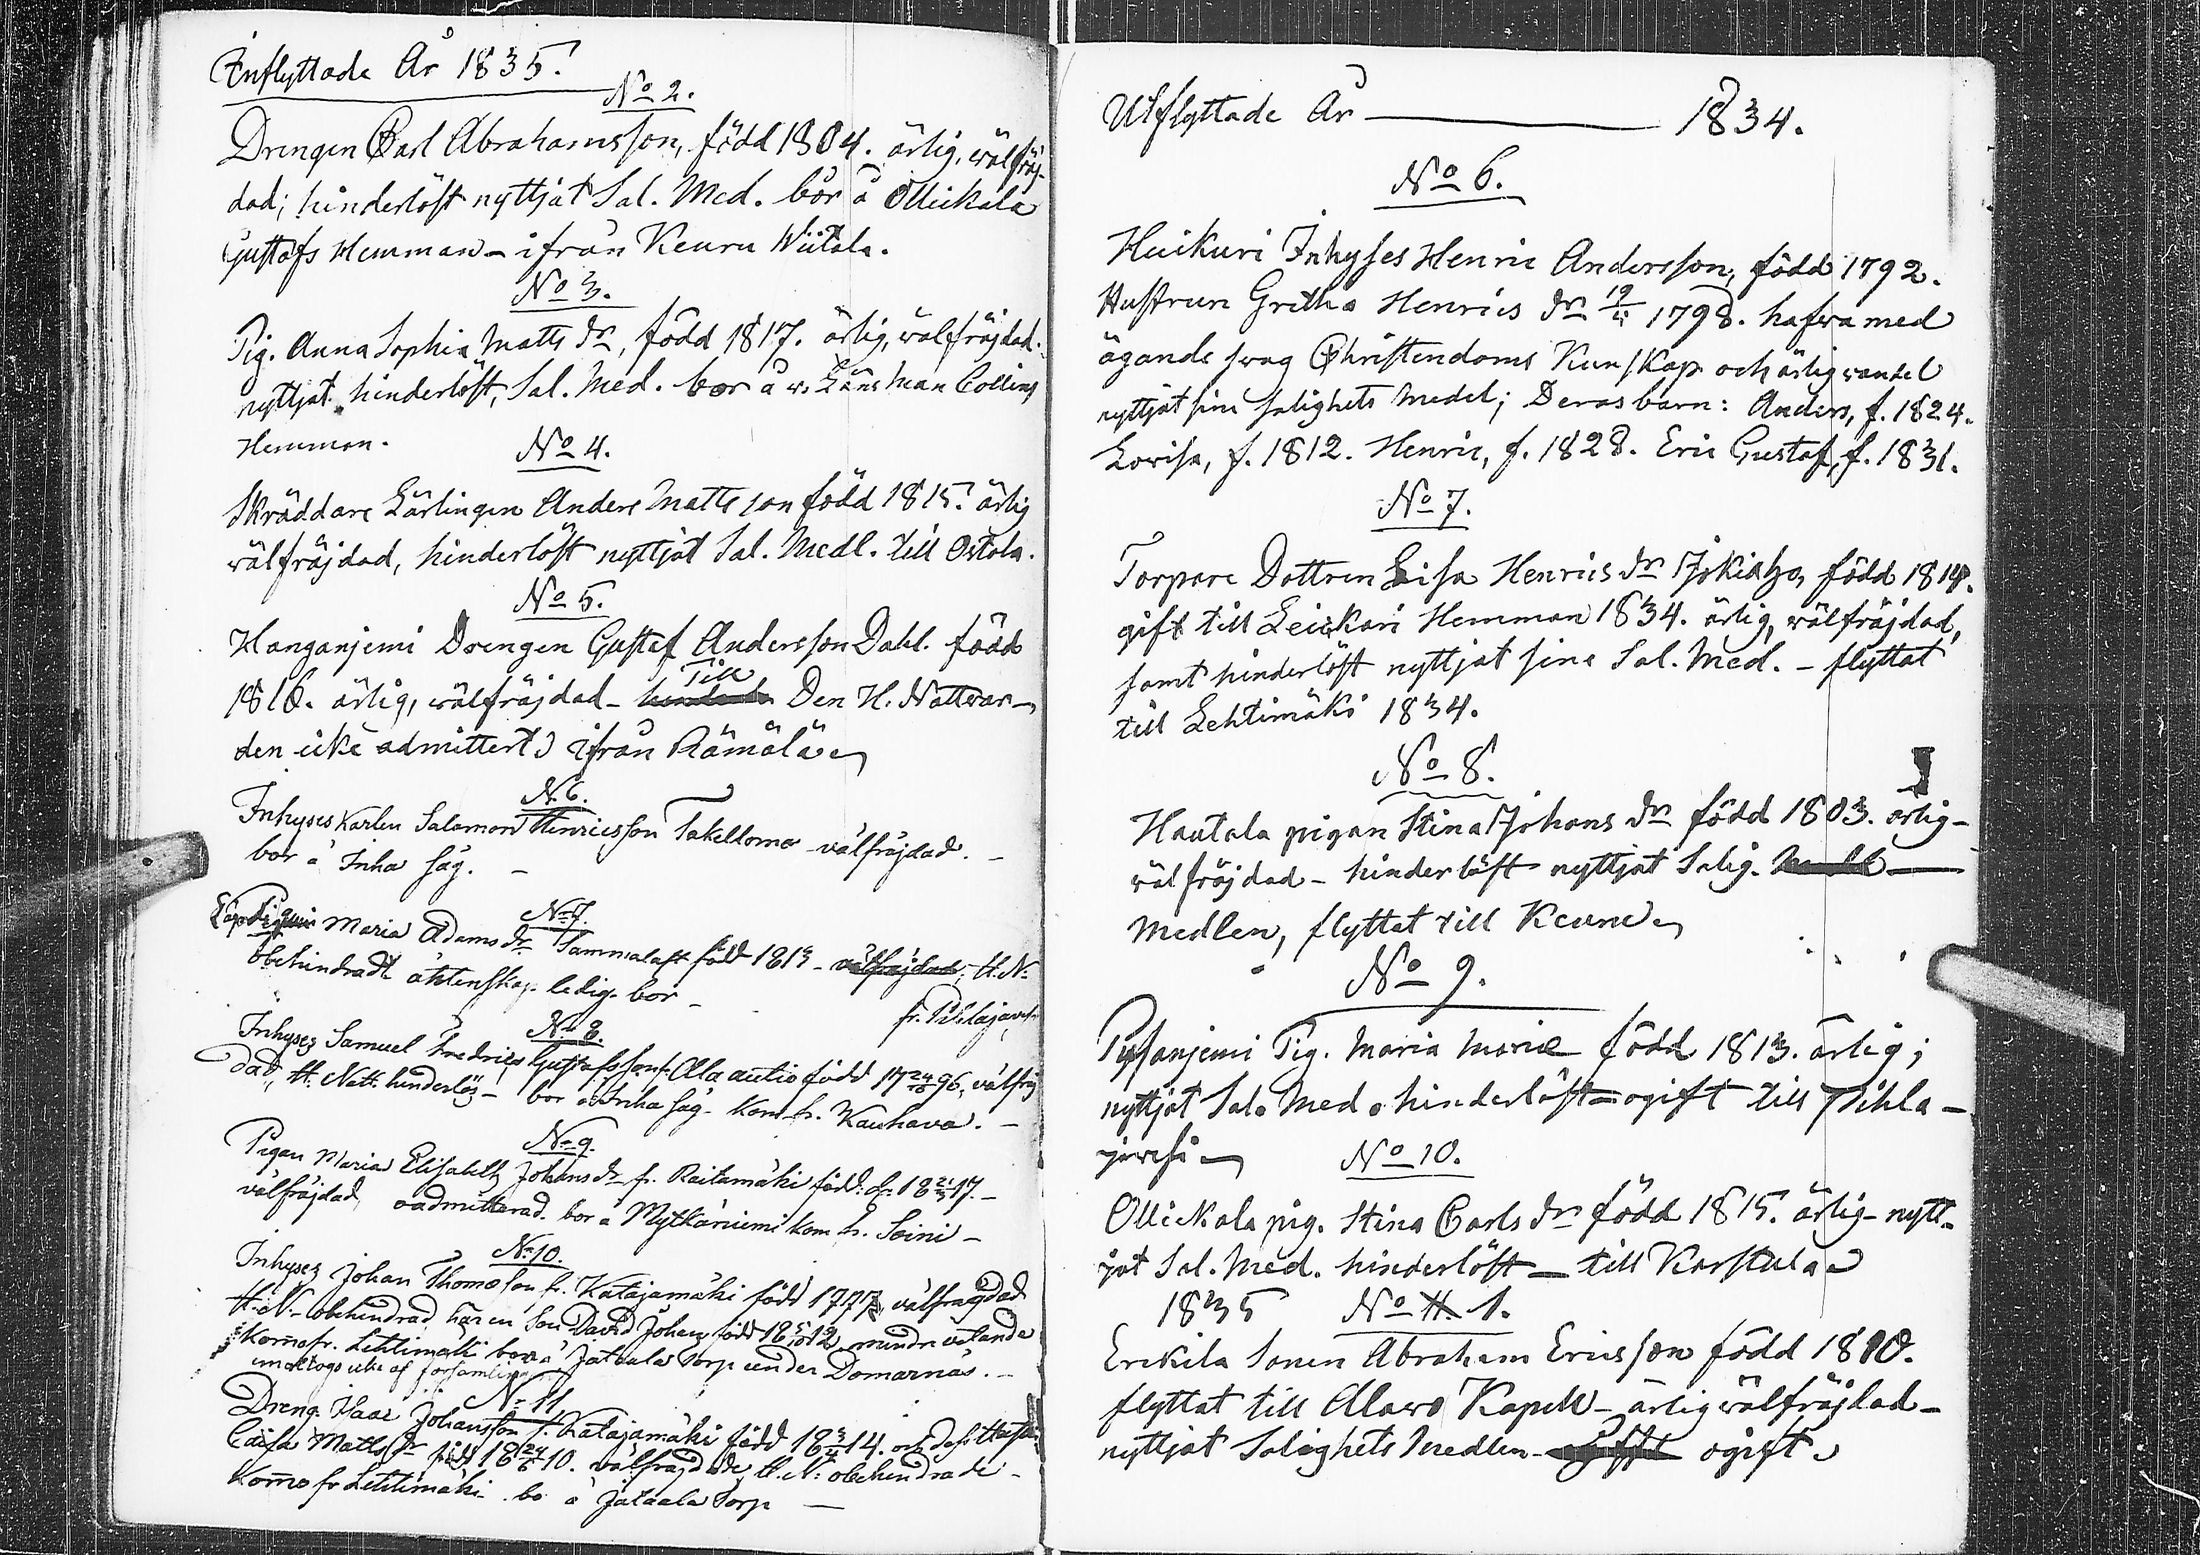 Inflyttade År 1835.
No 2.
Drengen Carl Abrahamsson, född 1804. ärlig, wälfräj-
dad; hinderlöst nyttjat Sal. Med. bor å Ollickala
Gustafs Hemman - ifrån Keuru Wiitala.
No 3.
Pig. Anna Sophia Matts dr, född 1817. ärlig, wälfräjdad.
nyttjat hinderlöst, Sal. Med. bor å v. Länsman Collins
Hemman.
No 4.
Skräddare Lärlingen Anders Matts son född 1815. ärlig
wälfräjdad, hinderlöst nyttjat Sal. Medl. till Ostola.
No 5.
Hanganjemi Drengen Gustaf Andersson Dahl. född
1816. ärlig, wälfräjdad - Till Den H. Nattvar-
den icke admittert) ifrån Rämälä
N. 6.
Inhyses Karlen Salomon Henricsson välfräjdad. -
bor å Inha såg. -
No 7.
Maria Adams dr född 1813 - välfräjdad, H. N.
obehindradt äktenskap ledig. bor -
fr. Pihlajavesi
No 8.
Inhyses Samuel Fredrics Gustafsson Ala autio född 17 24/10 96, välfräj
dad, H. Natt. hinderlös - bor å Inha såg - kom fr. Kauhava. -
No 9.
Pigan Maria Elisabeth Johans dr fr. Raitamäki född 18 21/3 17. -
välfräjdad, oadmitterad. bor å Mytkäniemi kom fr. Soini -
No 10.
Inhyses Johan Thomasson fr. Katajamäki född 1777, välfrägdad
H. N. - obehindrad, har en son David Johan, född 1812, mindre vetande
Komo fr. Lehtimäki bor å Jataala Torp under Domarnäs. -
emottogs icke af församlingen
No 11.
Dreng. Isaac Johansson f. Katajamäki född 18 3/4 14. och dess Hustru
Caisa Matts dr född 18 24/6 10. välfräjdade, H. N. obehindrade -
Komo fr Lehtimäki bo å Jataala Torp -
Utflyttade År 1834.
No 6.
Huikuri Inhyses Henric Andersson, född 1792.
Hustrun Gretha Henrics dr 1798. hafva med
ägande swag Christendoms Kunskap och ärlig wandel
nyttjat sine salighets medel; Deras barn: Anders, f. 1824.
Lovisa, f. 1812. Henric, f. 1828. Eric Gustaf, f. 1831.
No 7.
Torpare Dottren Lisa Henrics dr Jokiaho, född 1814.
gift till Leickari Hemman 1834. ärlig, wälfräjdad,
samt hinderlöst nyttjat sine Sal. Med. - flyttat
till Lehtimäki 1834.
No 8.
Hautala pigan Stina Johans dr född 1803. ärlig -
wälfräjdad - hinderlöst nyttjat Salig. Medl
Medlen, flyttat till Keuru
No 9.
Pig. Maria född 1813. ärlig;
nyttjat Sal. Med. hinderlöst - ogift till Pihla -
jawesi
No 10.
Ollickala pig. Stina Carls dr född 1815. ärlig - nytt-
jat Sal. Med. hinderlöst - till Karstula
1835 No 11. 1.
Erickila Sonen Abraham Ericsson född 1810.
flyttat till Alawo Kapell - ärlig wälfräjdad -
nyttjat Salighets Medlen - ogift